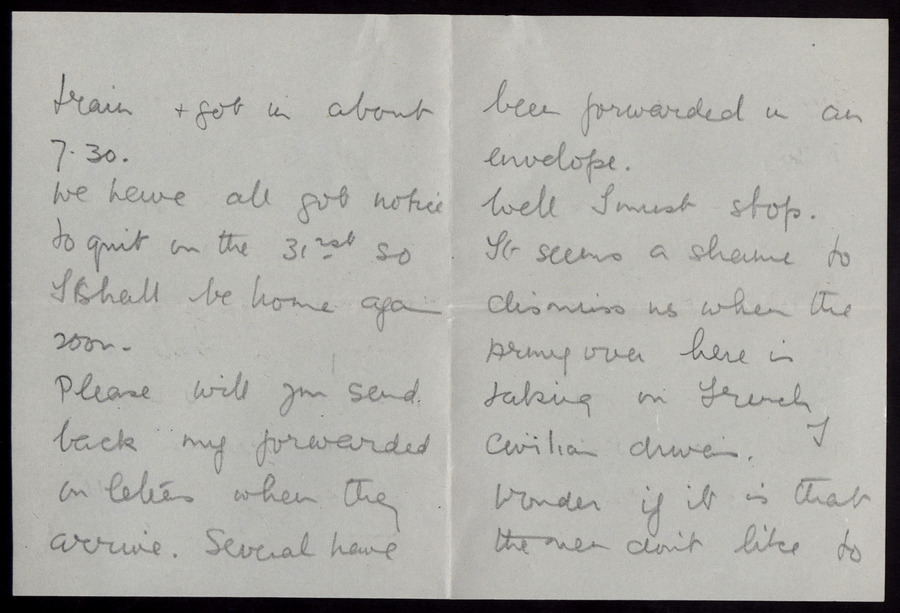 train + got in about
7.30.
We have all got notice
to quit on the 31rst so
I shall be home again
soon.
Please will you send
back my forwarded
on letters when they
arrive. Several have
been forwarded in an
envelope.
Well I must stop.
It seems a shame to
dismiss us when the
army over here is
taking on French
civilian drivers. I
wonder if it is that
the men don't like to